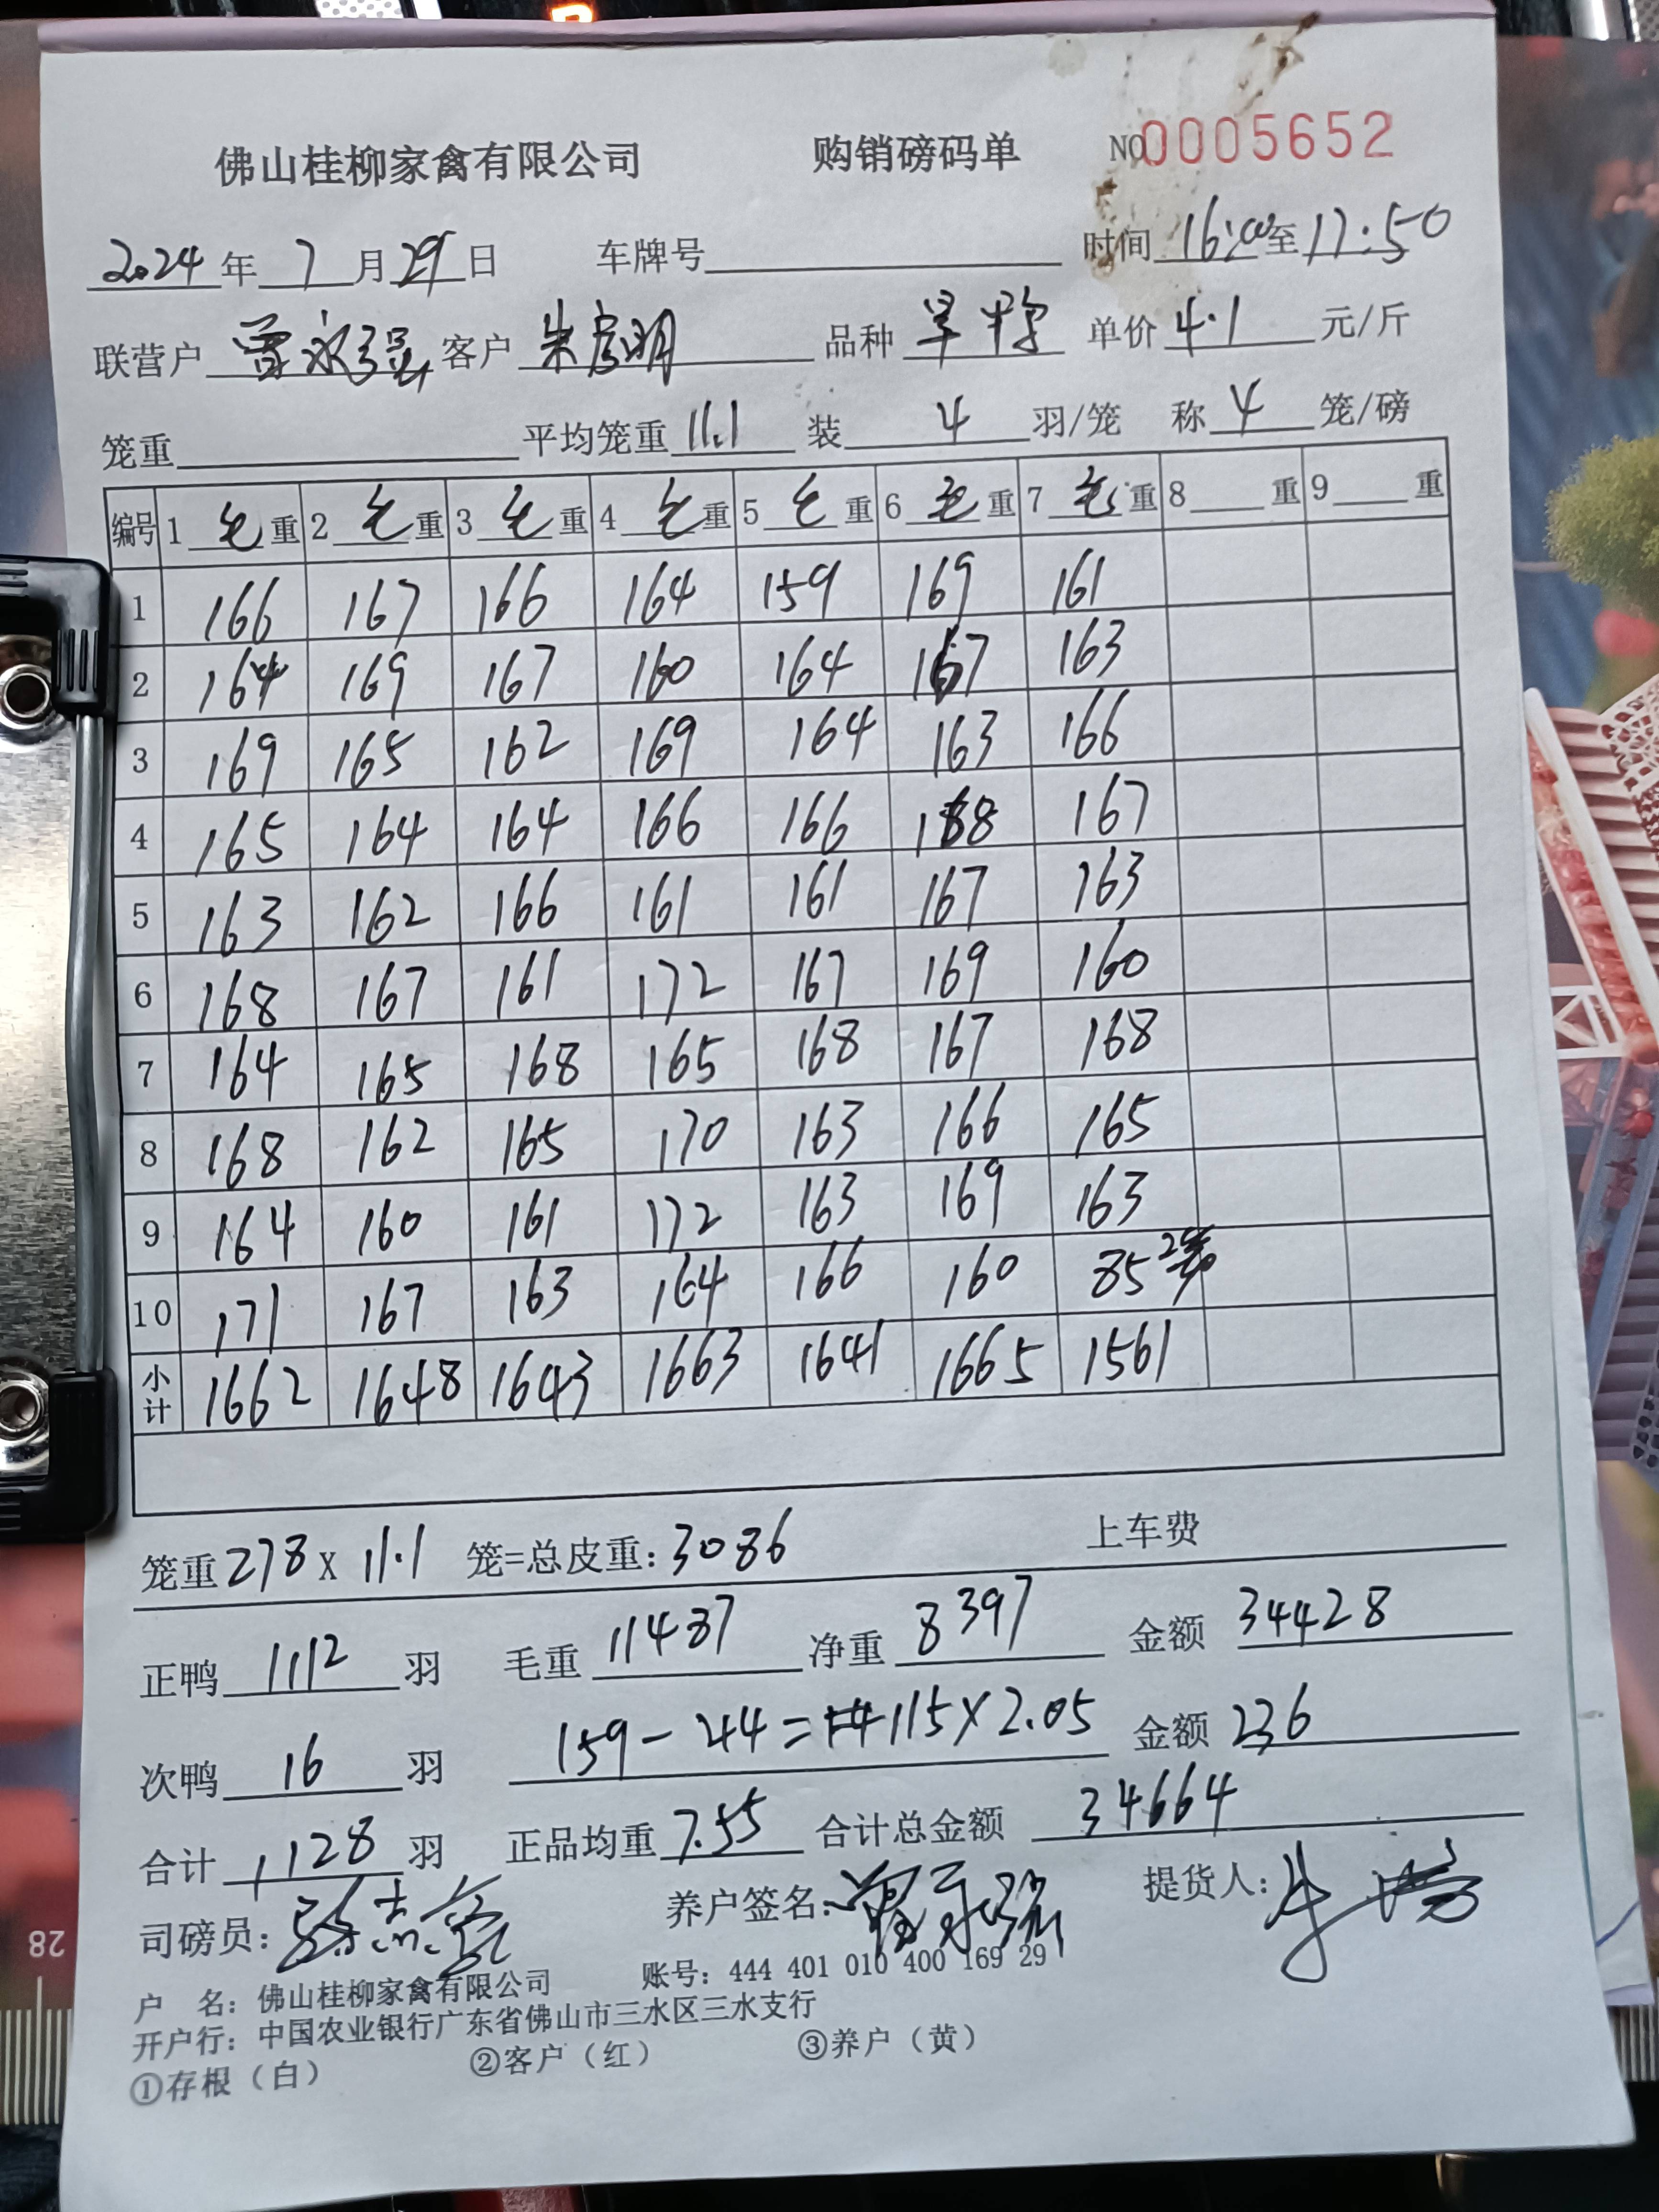 佛山桂柳家禽有限公司 购销磅码单 NO0005652
2024年7月29日 车牌号 时间16:00至17:50
联营户曾永强 客户朱彦明 品种 单价4.1元/斤
笼重 平均笼重11.1 装4羽/笼 称4笼/磅
编号 1毛重 2毛重 3毛重 4毛重 5毛重 6毛重 7毛重 8重 9重
1 166 167 166 164 159 169 161
2 164 169 167 160 164 167 163
3 169 165 162 169 164 163 166
4 165 164 164 166 166 168 167
5 163 162 166 161 161 167 163
6 168 167 161 172 167 169 160
7 164 165 168 165 168 167 168
8 168 162 165 170 163 166 165
9 164 160 161 172 163 169 163
10 171 167 163 164 166 160 85 2笼
小计 1662 1648 1643 1663 1641 1665 1561
笼重278x11.1笼=总皮重:3086 上车费
正鸭1112羽 毛重11487 净重8397 金额34428
次鸭16羽 159-44=115×2.05 金额236
合计1128羽 正品均重7.55 合计总金额34664
司磅员: 养户签名:曾永强 提货人:
户 名:佛山桂柳家禽有限公司 账号:444 401 010 400 169 29
开户行:中国农业银行广东省佛山市三水区三水支行
①存根(白) ②客户(红) ③养户(黄)
28